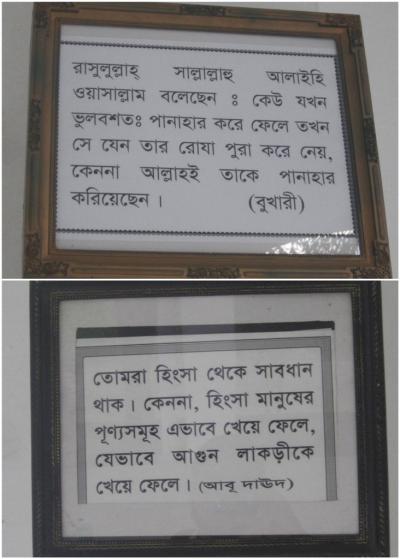 রাসুলুল্লাহ্ সাল্লাল্লাহু আলাইহি
ওয়াসাল্লাম বলেছেন ঃ কেউ যখন
ভুলবশতঃ পানাহার করে ফেলে তখন
সে যেন তার রোযা পুরা করে নেয়,
কেননা আল্লাহই তাকে পানাহার
করিয়েছেন। (বুখারী)
তোমরা হিংসা থেকে সাবধান
থাক। কেননা, হিংসা মানুষের
পূণ্যসমূহ এভাবে খেয়ে ফেলে,
যেভাবে আগুন লাকড়ীকে
খেয়ে ফেলে। (আবূ দাউদ)